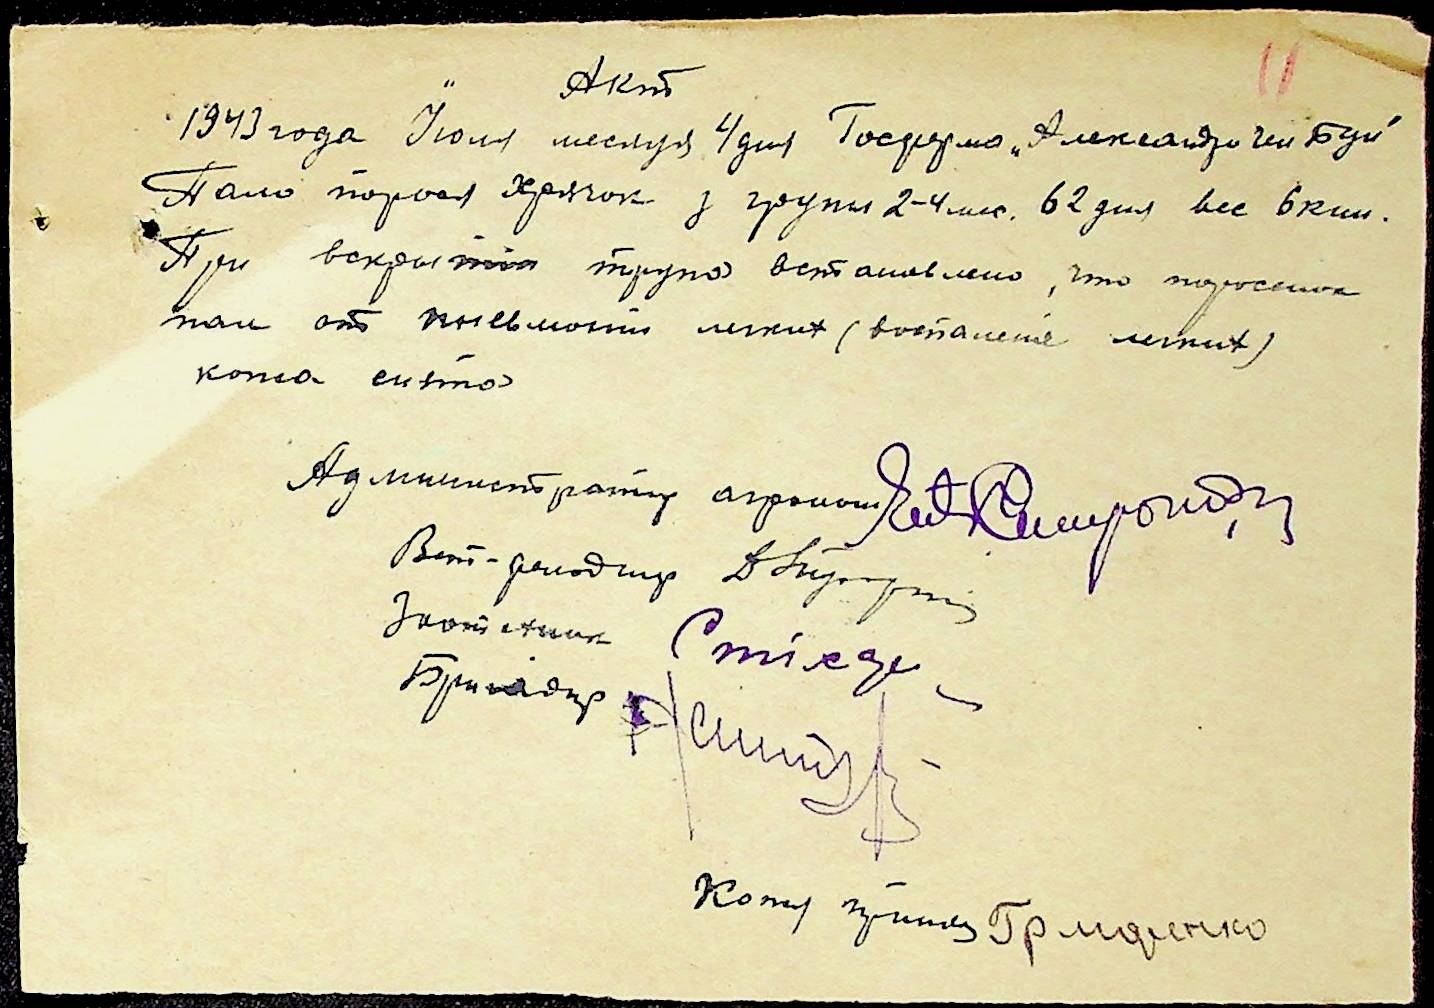 11
Акт
1943 года Июля месяця 4 дня Госферма „Александро
Пало порося хрячок з групы 2-4 мес. 62 дня вес 6 кил.
При вскрытии трупа встановлено, что поросенок
пал от пневмонии легких (воспаление легких)
кожа снята
Администратор агроном
Вет-фельдшер
Зоотехник
Бригадир
Кожу принял